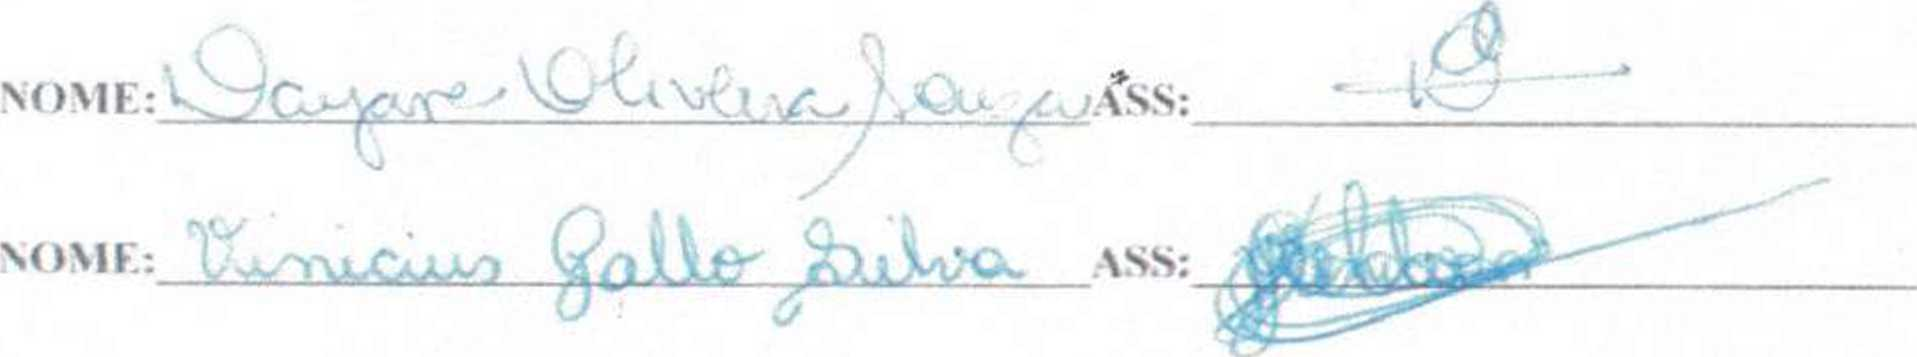 NOME: Dayane Oliveira Souza ASS:
NOME: Vinicius Gallo Silva ASS: